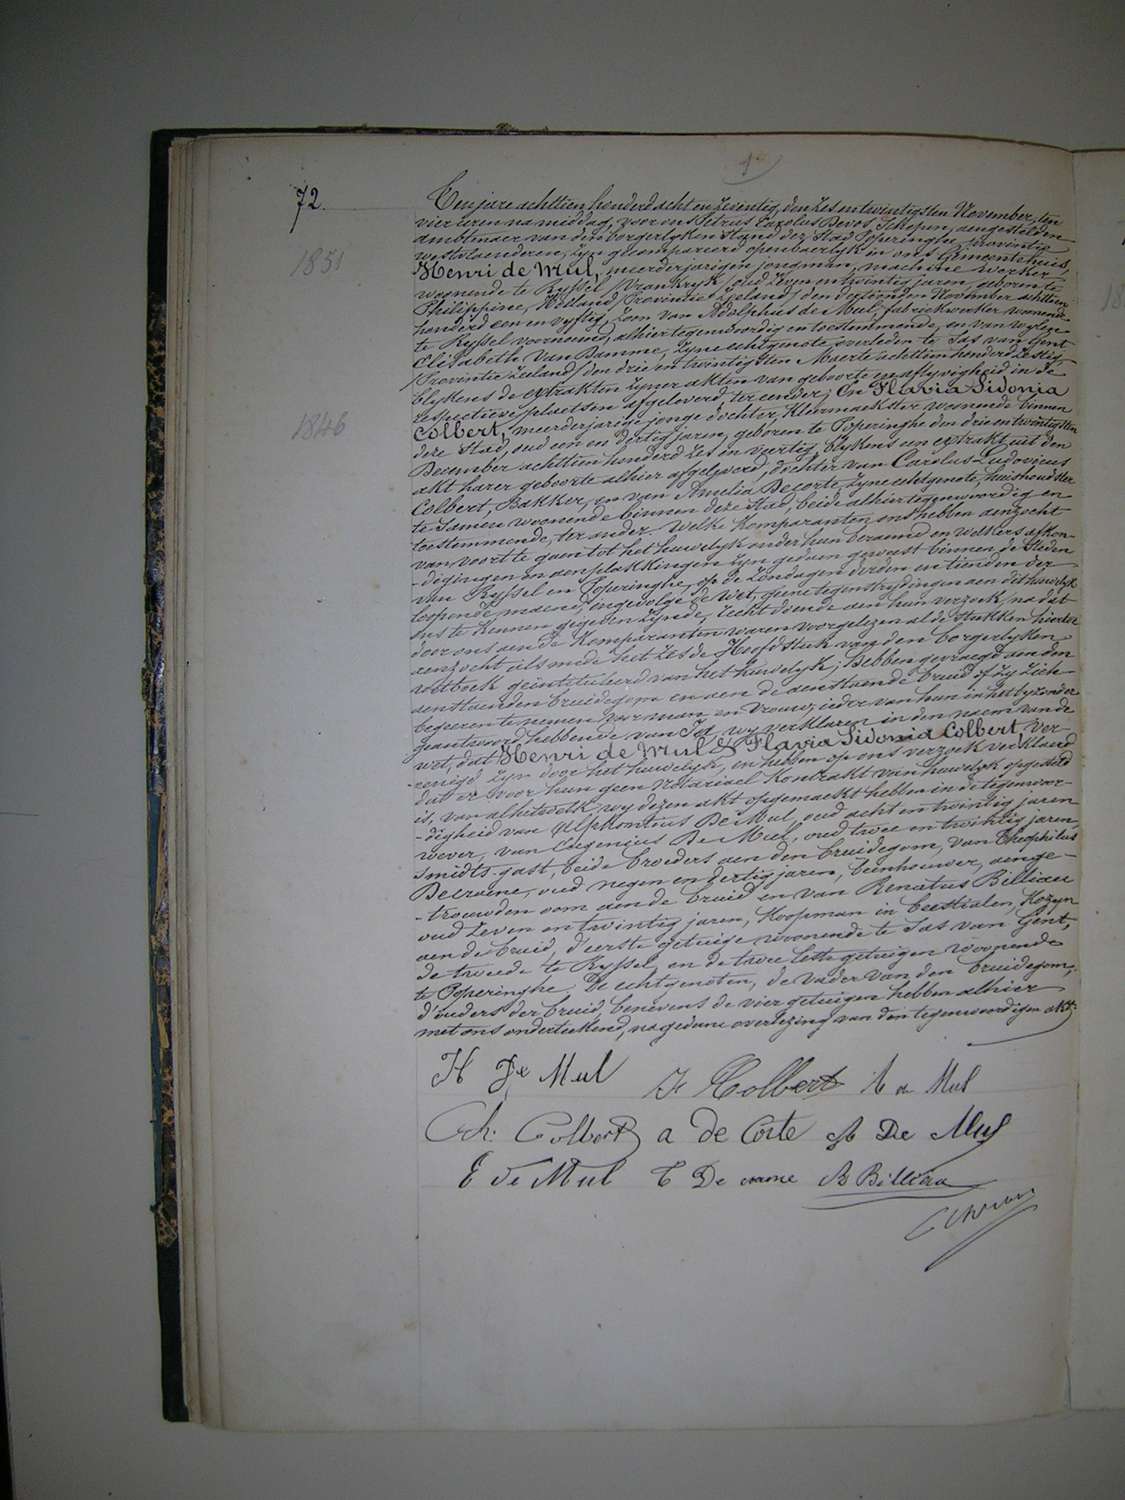 1
72.
Ten jare achttien honderd acht en zeventig, den zes en twintigsten November, ten
vier uren namiddag, voor ons Petrus Carolus Devos, Schepen, aengestelden
ambtenaer van den borgerlyken stand der Stad Poperinghe, provintie
westvlaenderen, zyn gecompareerd openbaerlyk in ons Gemeentehuis,
1851
Henri de Mul, meerderjarigen jongman, machine werker
woonende te Ryssel /Vrankryk/ oud zeven en twintig jaren, geboren te
Philippine, Holland /Provintie Zeeland/ den November achttien
honderd een en vyftig, zoon van Adolphus de Mul, fabriekwerker woonende
te Ryssel voornoemd, alhier tegenwoordig en toestemmende, en van wylen
Elisabethe Van Damme, zyne echtgenote, overleden te Sas van Gent
/Provintie Zeeland/ den drie en twintigsten Maerte achttien honderd zestig,
blykens de extrakten zyner akten van geboorte en aflyvigheid in de
respective plaetsen afgeleverd, ter eender; En Flavia Sidonia
1846
Colbert, meerderjarige jonge dochter, Kleermaekster woonende binnen
deze Stad, oud een en dertig jaren, geboren te Poperinghe den drie en twintigsten
December achttien honderd zes en veertig, blykens een extrakt uit den
akt harer geboorte alhier afgeleverd, dochter van Carolus-Ludovicus
Colbert, Bakker, en van Amelia Decorte, zyne echtgenote, huishoudster
te samen woonende binnen deze Stad, beide alhier tegenwoordig en
toestemmende, ter ander. Welke Komparanten ons hebben aenzocht
van voort te gaen tot het huwelyk onder hun beraemd en welkers afkon-
-digingen en aenplakkingen zyn gedaen geweest binnen de Steden
van Ryssel en Poperinghe, op de zondagen derden en tienden der
loopende maend, ingevolge de wet, geene tegenstrydingen aen dit huwelyk
ons te kennen gegeven zynde, recht doende aen hun verzoek, na dat
door ons aen de Komparanten waren voorgelezen al de stukken hierter
aenzocht alsmede het zesde Hoofdstuk van den borgerlyken
wetboek geintituleerd van het huwelyk; Hebben gevraegd aen den
aenstaenden bruidegom en aen de aenstaende bruid of zy zich
begeeren te nemen voor man en vrouw, ieder van hun in het byzonder
geantwoord hebbende van Ja, wy verklaren in den naem van de
wet, dat Henri de Mul & Flavia Sidonia Colbert, ver-
-eenigd zyn door het huwelyk, en hebben op ons verzoek verklaerd
dat er voor hun geen notariael Kontrakt van huwelyk opgesteld
is, van al hetwelk wy dezen akt opgemaekt hebben in de tegenwoor-
-digheid van Alphontius De Mul, oud acht en twintig jaren
wever, van Eugenius De Mul, oud twee en twintig jaren,
smidts-gast, beide broeders aen den bruidegom, van Theophilus
Decraene, oud negen en dertig jaren, beenhouwer, aenge-
-trouwden oom aen de bruid en van Renatus Billiau
oud zeven en twintig jaren, Koopman in beestialen, Kozyn
aen de bruid, d'eerste getuige woonende te Sas van Gent,
de tweede te Ryssel, en de twee leste getuigen woonende
te Poperinghe. De echtgenoten, de vader van den bruidegom,
d'ouders der bruid, benevens de vier getuigen hebben alhier
met ons onderteekend, na gedane overlezing van den tegenwoordigen akt.
H De Mul F Colbert A De Mul
Ch. Colbert a de Corte A De Mul
E De Mul T De crane R Billiau